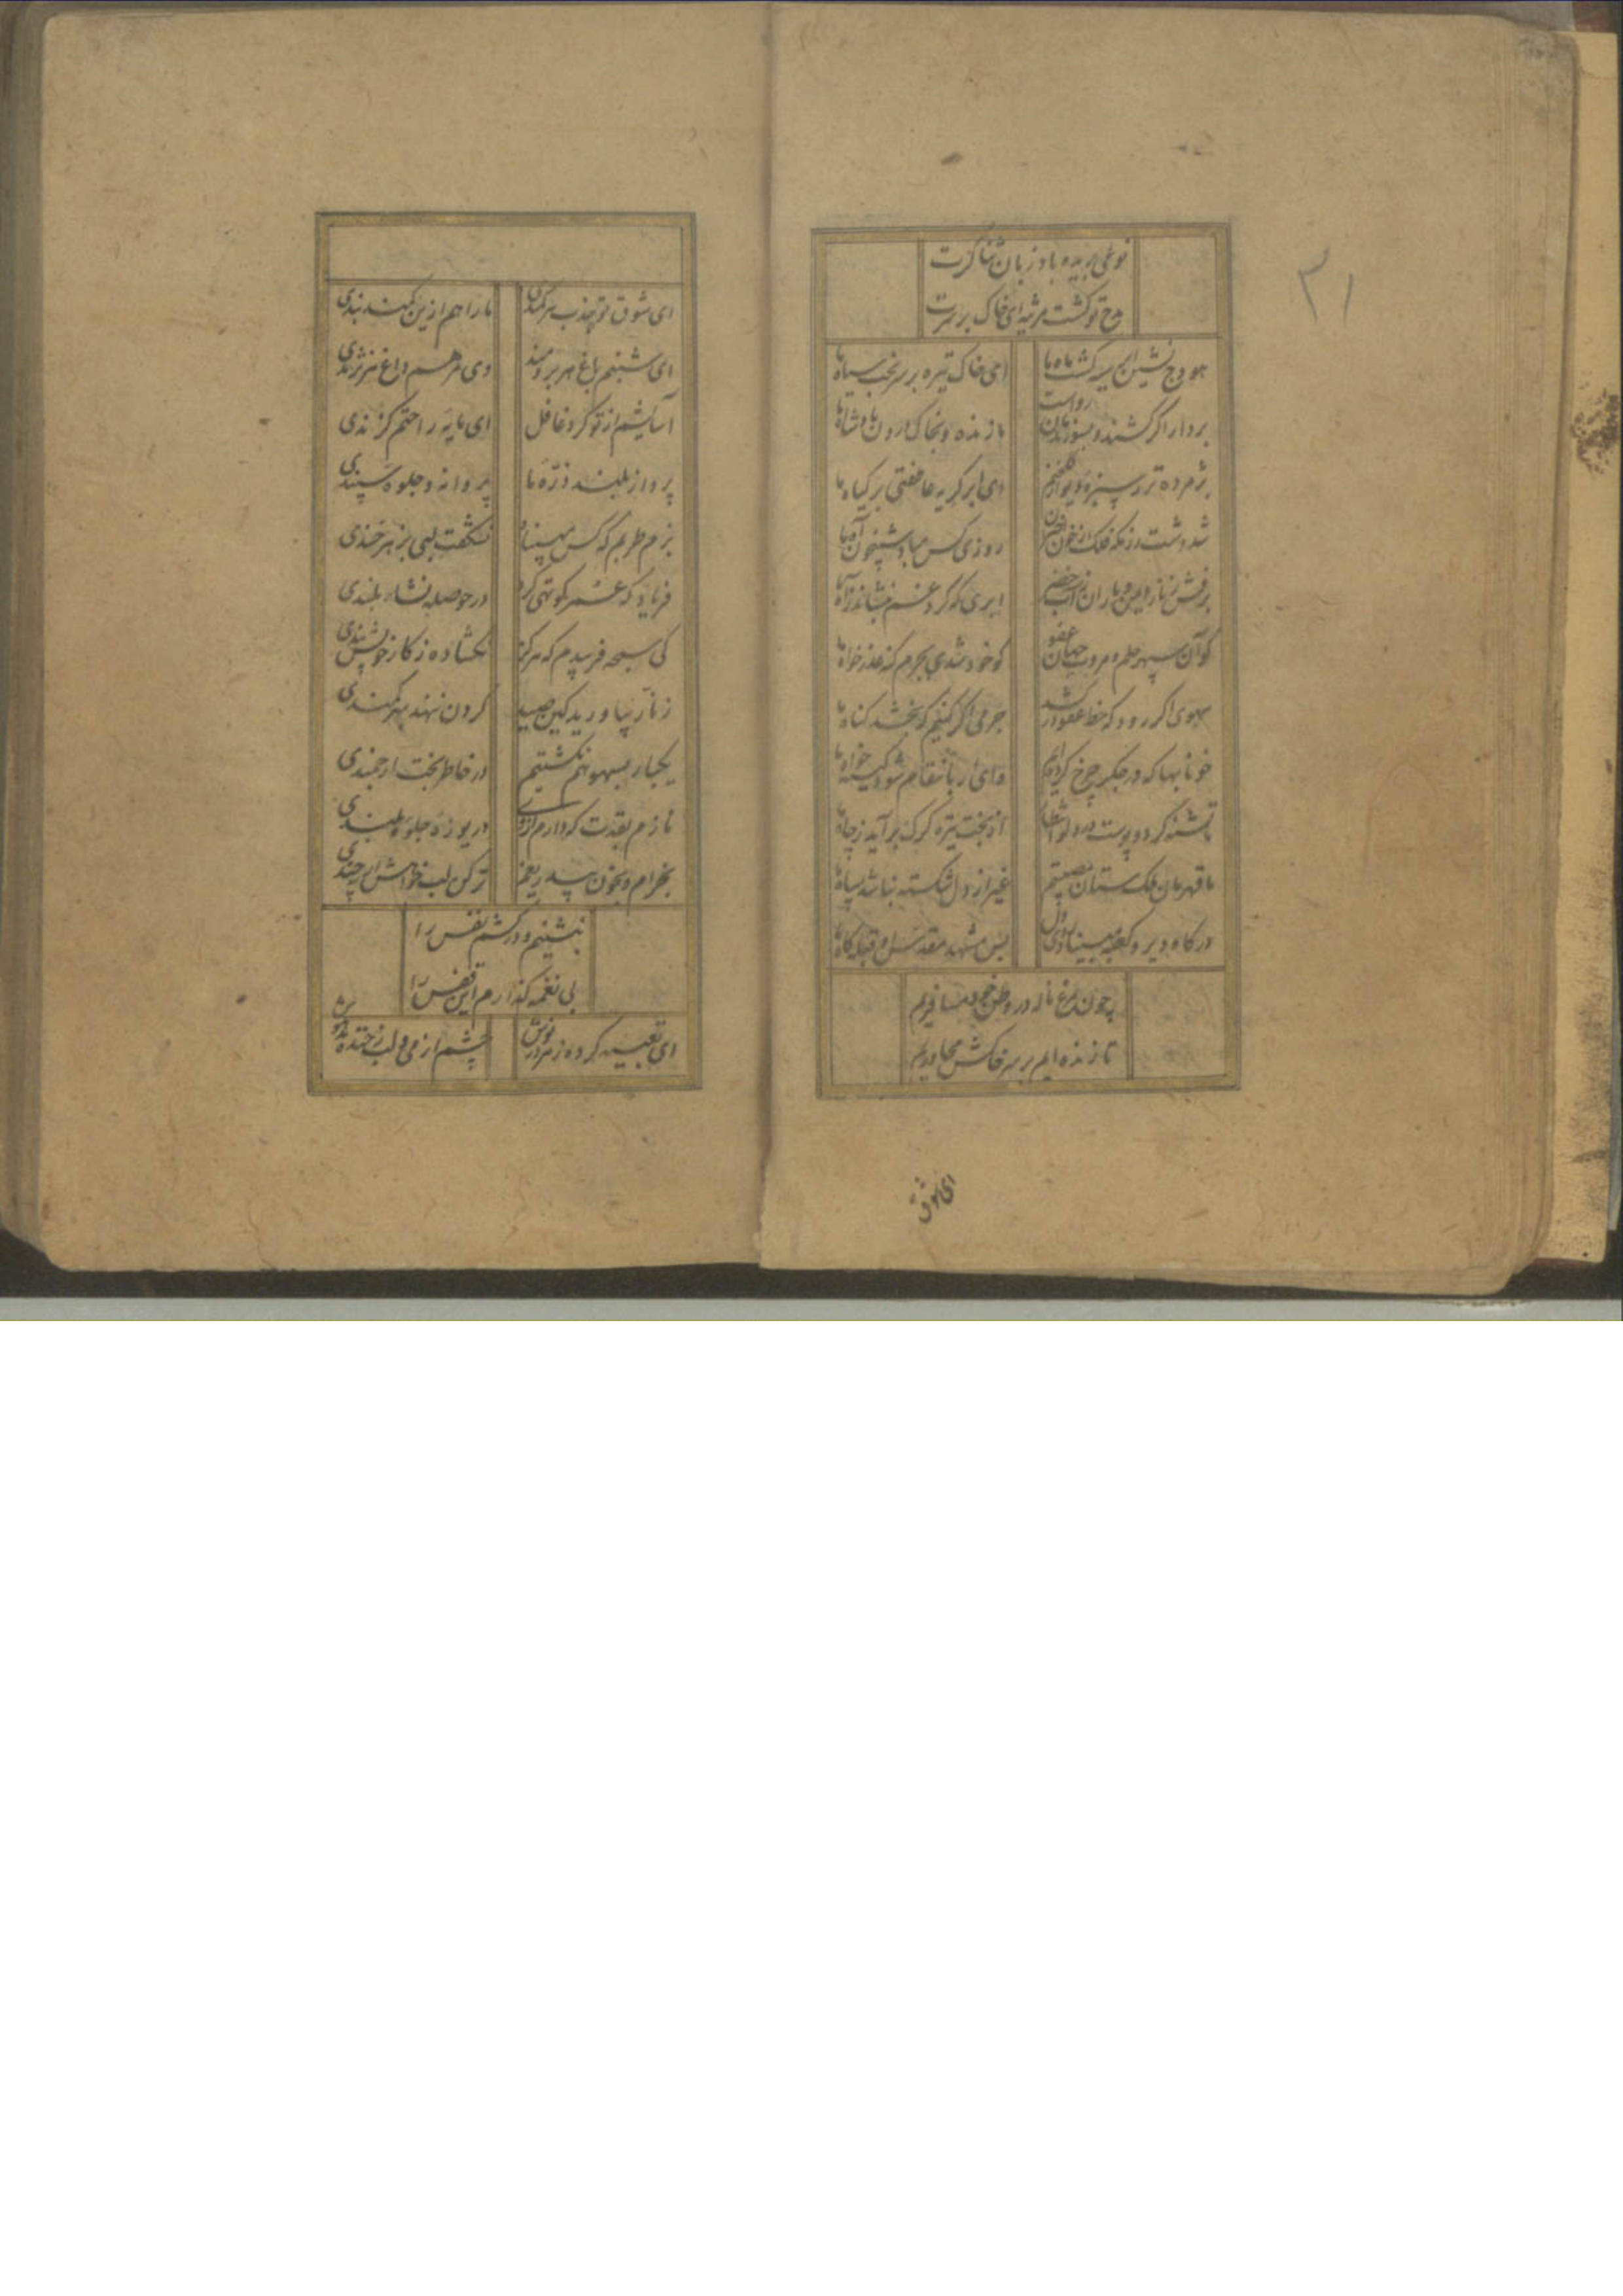 نوعی بریده باد زبان ثناگرت
مدح تو گشت مرثیه ای خاک بر سرت
۳۱
هودج نشین ابر سیه گشت ماه ما
ای خاک تیره بر سر بخت سیاه ما
بر دار اگر کشند و بسوزندمان رواست
ما زنده و بخاک درون پادشاه ما
پژمرده تر ز سبزه دیوار گلخنیم
ای ابر گریه عاطفتی بر گیاه ما
شد دشت رزمگه فلک از خون
روزی کس مباد شبیخون آه ما
برقش ز ناز این و باران ز آب خضر
ابری که گرد غم بنشاند ز آه ما
کو آن سپهر حلم و مروت جهان عفو
کو خود شدی بجرم گنه عذرخواه ما
سهوی اگر رود که خط عفو در کشد
جرمی اگر کنیم که بخشد گناه ما
خونابها که در جگر چرخ کرده‌ایم
وای ار بانتقام شود کینه خواه ما
تشنه گردد یوست
از بخت تیره گرگ برآید ز چاه ما
ما قهرمان ملک ستان مصیبتیم
غیر از دل شکسته نباشد سپاه ما
درگاه دیر و کعبه مبیناد روی دل
بس مشهد مقدس او قبله گاه ما
چون مرغ ناله در وطن خود مسافریم
تا زنده ایم بر سر خاکش مجاوریم
ای شوق
ای شوق تو جذب هر کمندی
ما را هم ازین کمند بندی
ای شبنم باغ هر برومند
وی مرهم داغ هر نژندی
آسایشم از تو کرد غافل
ای مایه راحتم گزندی
پرواز بلند ذره ما
پروانه و جلوه سپندی
بزم طربم که کس مبیناد
نشگفت لبی بزهرخندی
فریاد که عمر کوتهی کرد
در حوصله نشاء بلندی
کی سبحه فرسدم که هرگز
نگشاده ز کار خویش بندی
زنار بیاورید کین صید
گردن ننهد بهر کمندی
یکبار بسهو هم نگشتیم
در خاطر بخت ارجمندی
نازم بقدت که دارم از وی
دریوزه جلوه بلندی
بخرام و بخون بیدریغم
تر کن لب خواهش ار چندی
بنشینم و درکشم نفس را
بی نغمه گذارم این قفس را
ای تعبیه کرده زهر در نوش
چشم از می و لب ز خنده